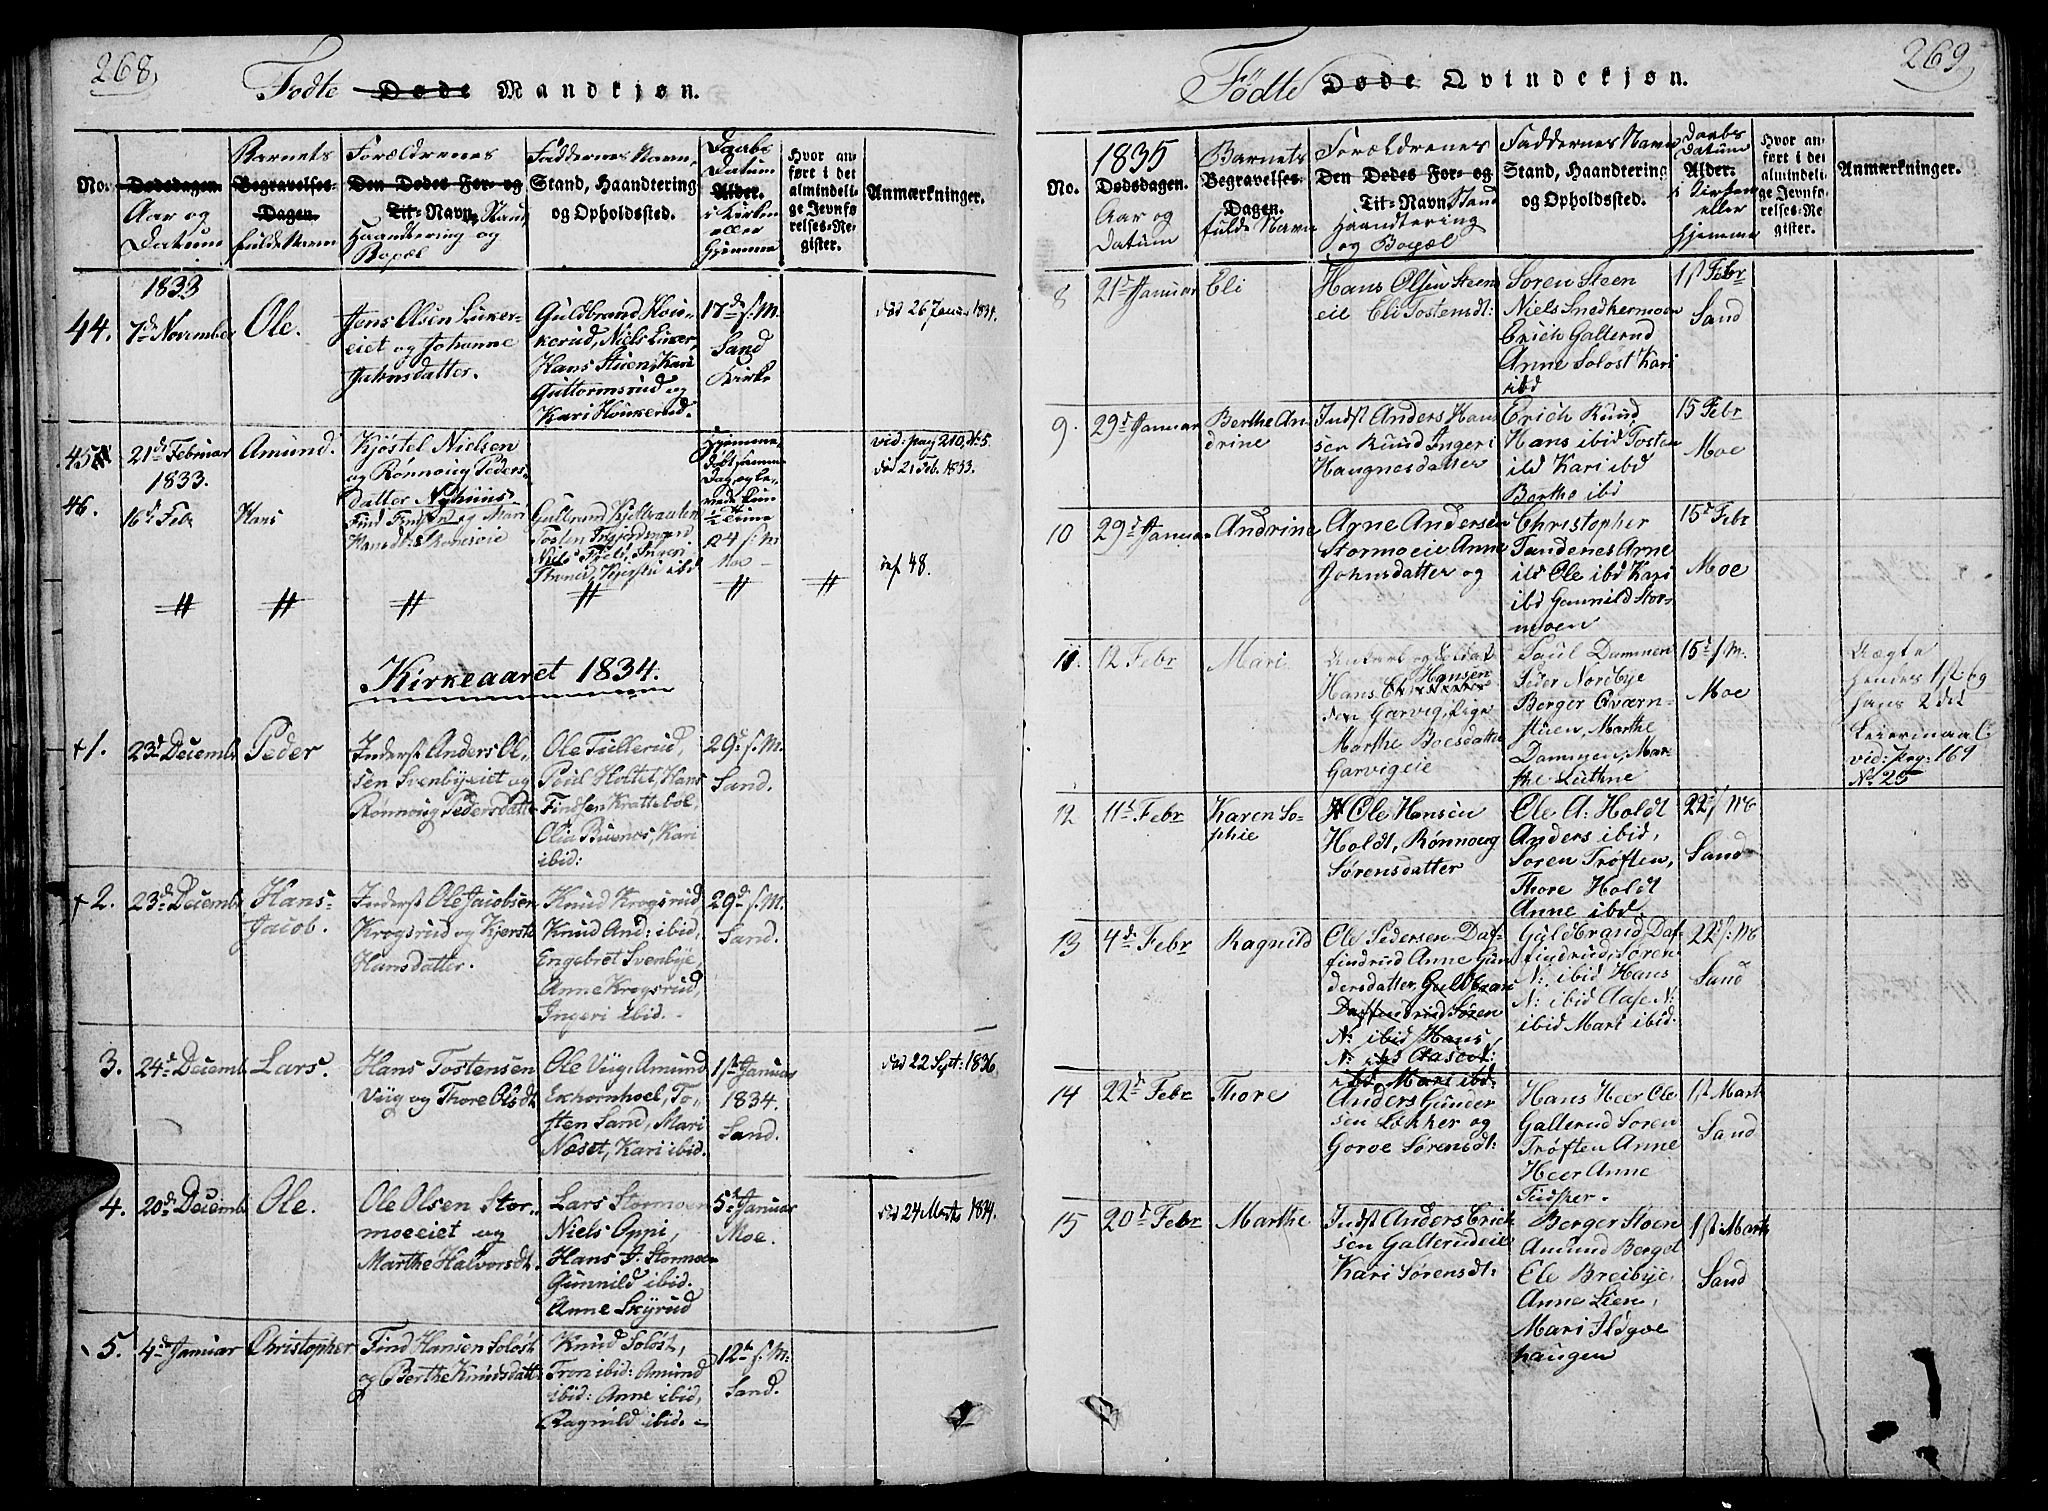 268.
Fødte Døde Mandkjøn.
No.
Dødsdagen.
Aar og
Datum
Barnets
Begravelses-
Dagen.
fulde Navn
Forældrenes
Den Dødes For- og
Til-Navn, Stand,
Haandtering og
Bopæl
Faddernes Navn,
Stand, Haandtering
og Opholdssted.
Daabs
Datum
Alder.
i Kirken
eller
Hjemme
Hvor an-
ført i det
almindeli-
ge Jevnfø-
relses-Re-
gister.
Anmærkninger.
1833
44.
7de November
Ole.
Jens Olsen Luker-
eiet og Johanne
Johnsdatter.
Guldbrand Hou-
kerud, Niels Luker,
Hans Stuen, Kari
Guttormsrud og
Kari Houkerud.
17de s. M.
Sand
Kirke
død 26 Januar 1834.
45
21de Februar
1833.
Amund.
Kjøstel Nielsen
og Rønnoug Peders-
datter Nyhuus
Hjemme
døbt samme
Dag og le-
vede kun
1/2 Time
vid: pag 210, N: 5.
død 21 Feb. 1833.
46.
16de Feb.
Hans
Find Findsen og Mari
Hansdt: Ronesveie
Guldbrand Kjelbraaten
Tosten
Niels
Kjersti ibd
24 s. M.
Moe
inf 48.
Kirkeaaret 1834.
+1.
23de Decemb
Peder
Inderst Anders Ol-
sen Svenbyeiet og
Rønnoug Pedersdatter
Ole Tullerud,
Poul Holtet, Hans
Findsen Krattebøe,
Olia Buenes, Kari
ibid:
29de s. M.
Sand.
+2.
23de Decemb
Hans-
Jacob.
Inderst Ole Jacobsen
Krogsrud og Kjersti
Hansdatter.
Knud Krogsrud
Knud And: ibid,
Engebret Svenbye,
Anne Krogsrud,
Ingeri ibid.
29de s. M.
Sand.
3.
24de Decemb.
Lars.
Hans Tostensen
Viig og Thore Olsdt.
Ole Viig, Amund
Exhornhoel, To-
sten Sand, Mari
Næset, Kari ibid.
1ste Januar
1834.
Sand.
død 22 Sept: 1836
4.
20de Decemb
Ole.
Ole Olsen Stor-
moeeiet og
Marthe Halvorsdt.
Lars Stormoen
Niels Oppi,
Hans J. Stormoen
Gunnild ibid.
Anne Skyrud
5te Januar
Moe.
død 24 Marts 1834.
5.
4de Januar
Christopher
Find Hansen Soløst
og Berthe Knudsdatt:
Knud Soløst,
Tron ibid: Amund
ibid: Anne ibid,
Ragnild ibid.
12te s. M:
Sand.
269
Fødte Døde Qvindekjøn.
No.
1835
Dødsdagen.
Aar og
Datum
Barnets
Begravelses-
Dagen.
fulde Navn
Forældrenes
Den Dødes For- og
Til-Navn Stand
Haandtering
og Bopæl
Faddernes Navn
Stand, Haandtering
og Opholdssted.
Daabs
Datum
Alder.
i Kirken
eller
Hjemme
Hvor an-
ført i det
almindeli-
ge Jevnfø-
relses-Re-
gister.
Anmærkninger.
8
21de Januar
Eli
Hans Olsen Steen
eie Eli Tostensdt:
Soren Steen
Niels Snedkermoen
Erich Gallerud
Anne Solost Kari
ibd
1st Febr
Sand
9.
29de Januar
Berthe An
drine
Indst Anders Han
sen Ruud Ingeri
Haagnesdatter
Erich Ruud
Hans ibid Tosten
ibd Kari ibd
Berthe ibd
15 Febr
Moe
10
29de Januar
Andrine
Arne Andersen
Stormoeie Anne
Johnsdatter og
Christopher
Tandenes Arne
ibd Ole ibd Kari
ibd Gunnild Stor-
moen
15d Febr
Moe
11.
12 Febr
Mari
Unkarl og Soldat
Hans Hansen
Garvig, Pige
Marthe Boesdatter
Garvigeie
Paul Dammen
Peder Nordbye
Berger Qværn-
stuen, Marthe
Dammen, Mar-
the Luthne
15d s. M.
Moe
Uægte
hendes 1ste og
hans 2det
Leiermaal
vid: pag: 169
N: 25
12
11te Febr
Karen So-
phie
Ole Hansen
Holdt, Rønnoug
Sørensdatter
Ole A: Holdt
Anders ibid,
Soren Trøften,
Thore Holdt
Anne ibd
22d s. M
Sand
13
4de Febr
Ragnild
Ole Pedersen Daf-
findrud Anne Gun
dersdatter, Guldbran
Daffindrud Søren
N: ibid Hans
N: ibd Aase N:
ibd Mari ibd.
Guldbrand Daf-
findrud, Søren
N: ibid Hans
N: ibid Aase N:
ibid Mari ibid.
22d s. M
Sand
14
22de Febr
Thore
Anders Gunder
sen Løkker og
Gorve Sørensdt:
Hans Heer Ole
Gallerud Soren
Trøften Anne
Heer Anne
1st Mart
Sand
15
20de Febr
Marthe
Indst Anders Erich
sen Galterudeie
Kari Sørensdt:
Berger Stoen
Amund Berget
Ole Breibye,
Anne Lien,
Mari Ildgoe
haugen
1st Mart
Sand